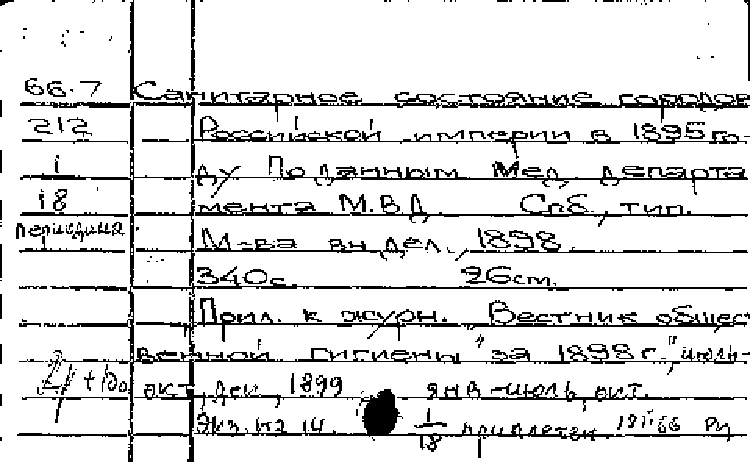 66.7 Санитарное состояние городов
212 Российской империи в 1895 го-
1 ду По данным Мед. департа
18 мента М.В.Д. Спб., тип.
периодика М-ва вн. дел., 1898
340с. 26cm.
Прил. к журн. Вестник общест
венной гигиены" за 1898 г., июль-
окт., дек., 1899 янв-июль, окт.
Экз. из 14. 1/18 приплетен.